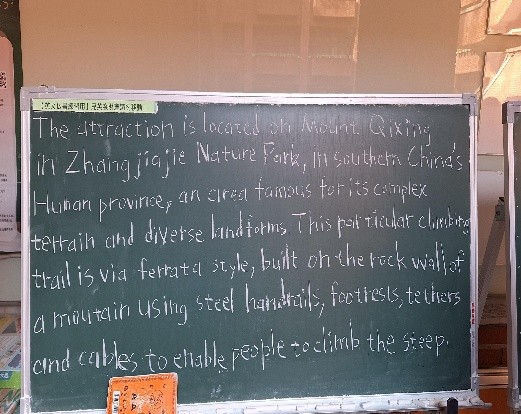 The attraction is located on Mount Qixing
in Zhangjiajie Nature Park, in southern China's
Hunan province, an area famous for its complex
terrain and diverse landforms. This particular climbing
trail is via ferrata style, built on the rock walls of
a moutain using steel handrails, footrests, tethers
and cables to enable people to climb the steep.